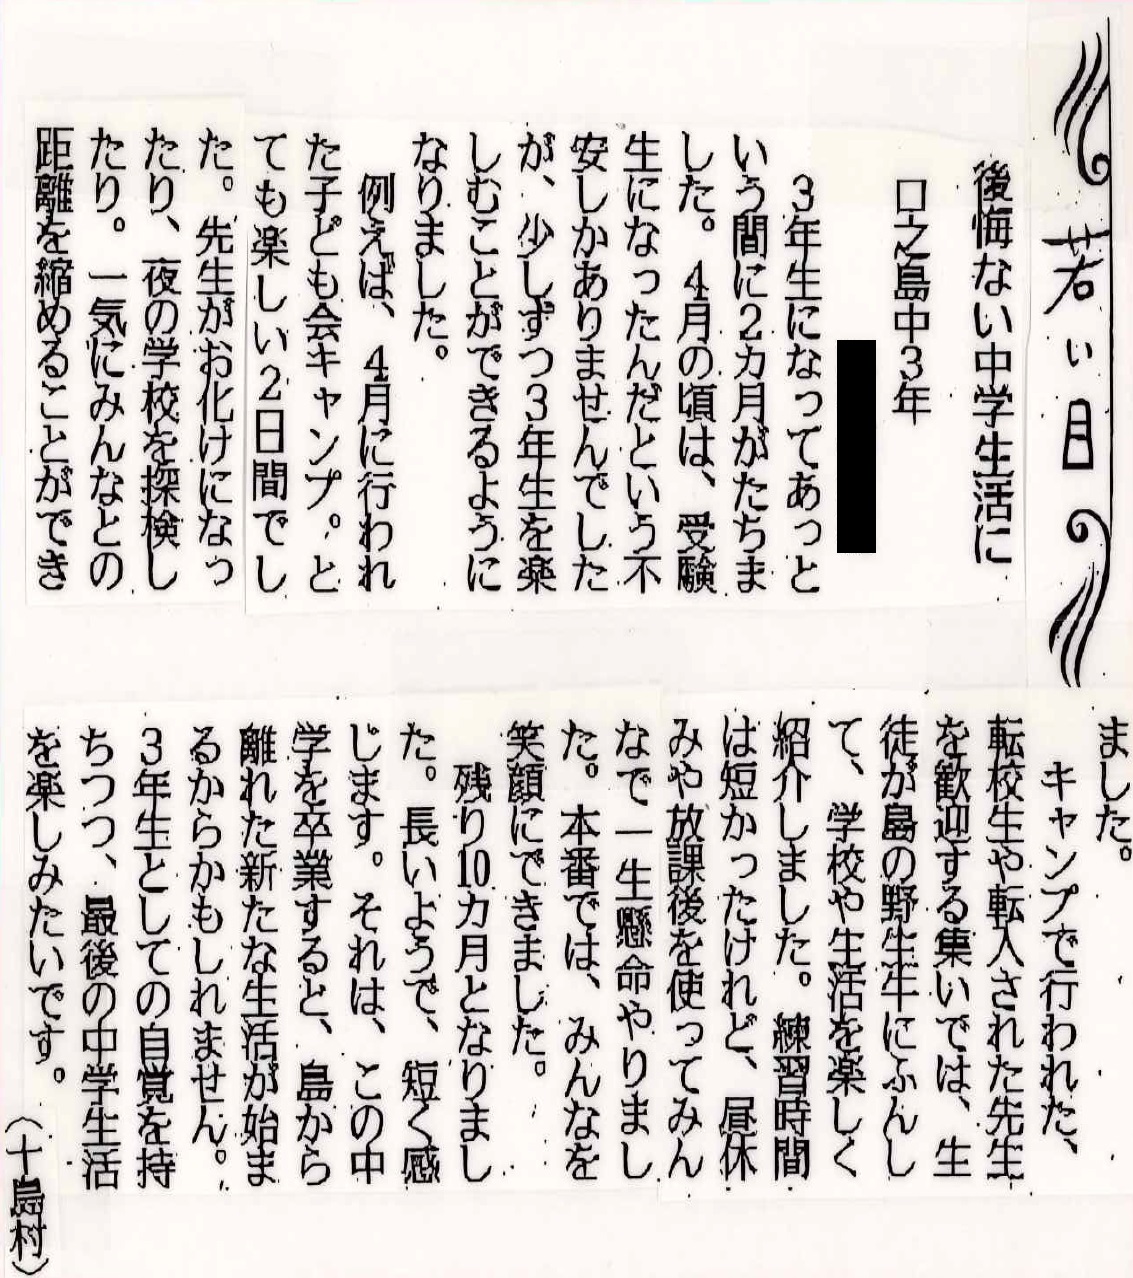 若い目
後悔ない中学生活に
口之島中3年
3年生になってあっと
いう間に2カ月がたちま
した。4月の頃は、受験
生になったんだという不
安しかありませんでした
が、少しずつ3年生を楽
しむことができるように
なりました。
例えば、4月に行われ
た子ども会キャンプ。と
ても楽しい2日間でし
た。先生がお化けになっ
たり、夜の学校を探検し
たり。一気にみんなとの
距離を縮めることができ
ました。
キャンプで行われた、
転校生や転入された先生
を歓迎する集いでは、生
徒が島の野生牛にふんし
て、学校や生活を楽しく
紹介しました。練習時間
は短かったけれど、昼休
みや放課後を使ってみん
なで一生懸命やりまし
た。本番では、みんなを
笑顔にできました。
残り10カ月となりまし
た。長いようで、短く感
じます。それは、この中
学を卒業すると、島から
離れた新たな生活が始ま
るからかもしれません。
3年生としての自覚を持
ちつつ、最後の中学生活
を楽しみたいです。
(十島村)